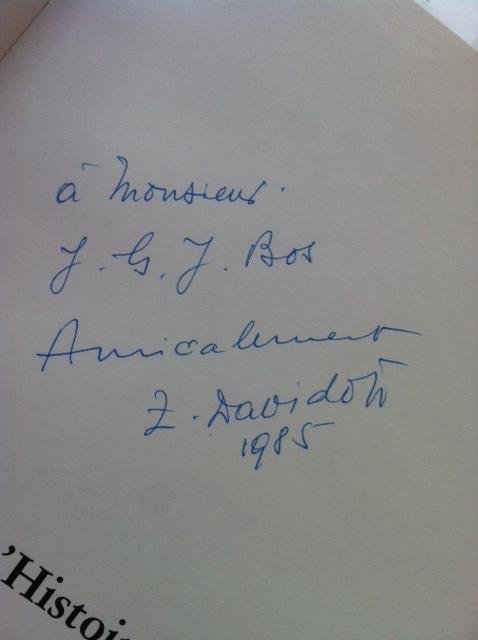 à Monsieur
J. G. J. Bos
Amicalement
Z. Davidoff
1985
'Histoi